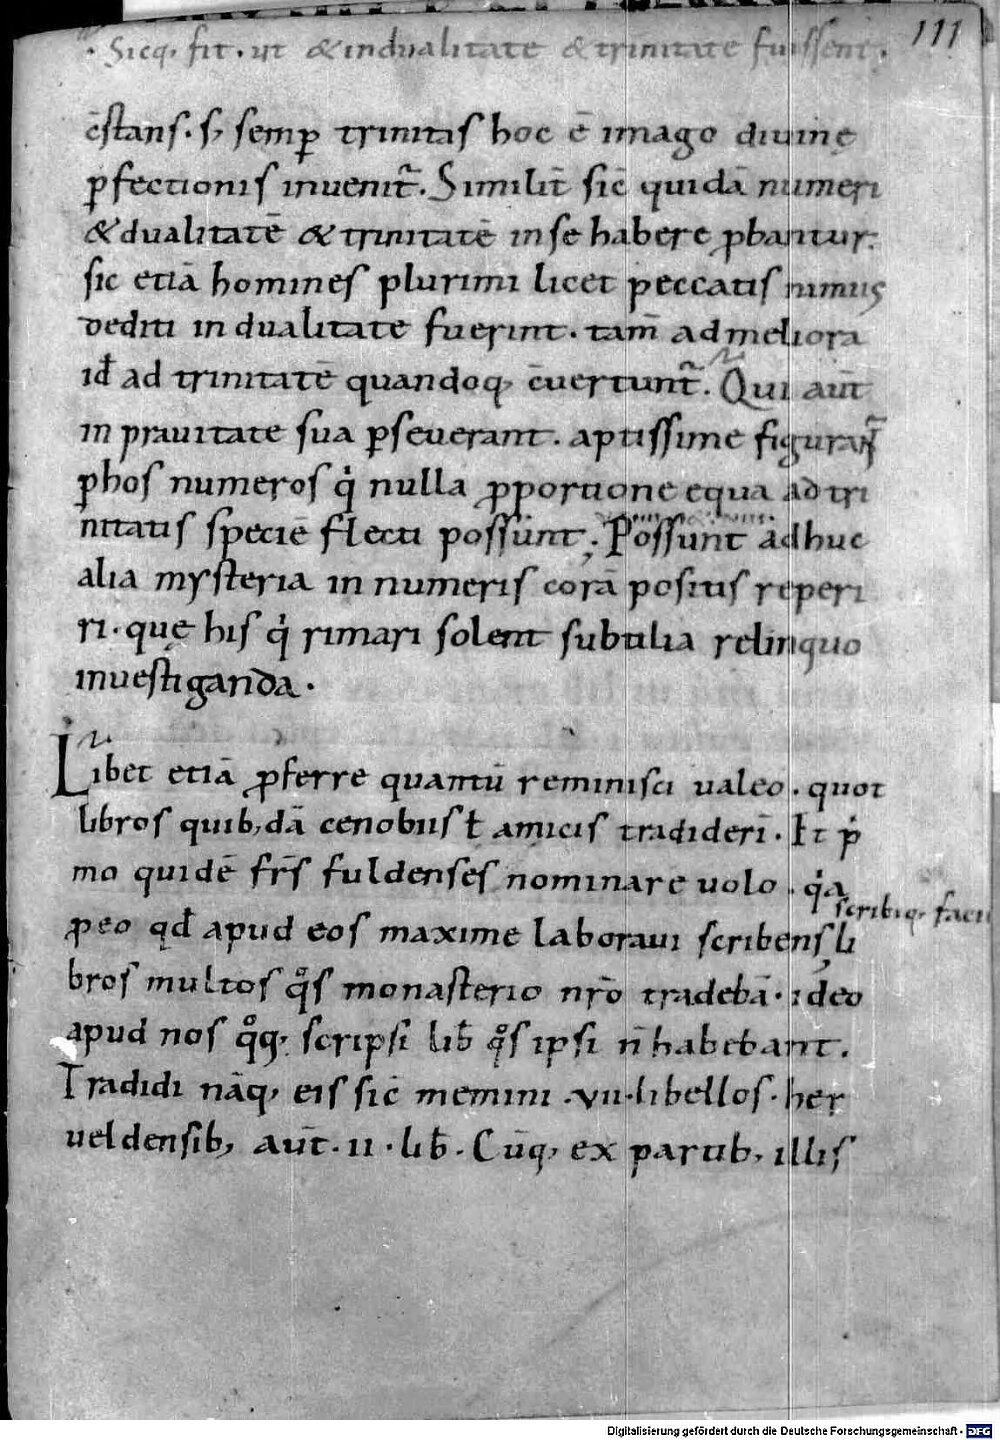 111
· Sicq, fit · ut & indualitate & trinitate fuissent ·
c̄stans · s; semꝑ trinitas hoc ē imago diuinę
ꝑfectionis inuenit᷑. Similit̄ sic̄ quidā numeri
& dualitatē & trinitatē in se habere ꝓbantur.
sic etiā homines plurimi licet peccatis nimis
dediti in dualitate fuerint · tam̄ ad meliora
id̄ ad trinitatē quandoq, c̄uertunt᷑. Qui aut̄
in prauitate sua ꝑseuerant · aptissime figurant᷑
ꝑ hos numeros qͥ nulla ꝓportione equa ad tri
nitatis speciē flecti possunt; Possunt adhuc
alia mysteria in numeris corā positis reperi
ri · quę his qͥ rimari solent subtilia relinquo
inuestiganda ·
Libet etiā ꝓferre quantū reminisci ualeo · quot
libros quib;dā cenobiis ł amicis tradiderī · Et pͥ
mo quidē fr̄s fuldenses nominare uolo · qͥa
scribiq,
ꝓ eo qd̄ apud eos maxime laboraui scribens li
bros multos qͦs monasterio nr̄o tradebā · ideo
apud nos qͦq, scripsi lib̄ qͦs ipsi n̄ habebant.
Tradidi nāq, eis sic̄ memini · vii · libellos · her
ueldensib; aut̄ · ii · lib̄ · Cūq, ex partib; illis
Digitalisierung gefördert durch die Deutsche Forschungsgemeinschaft - DFG